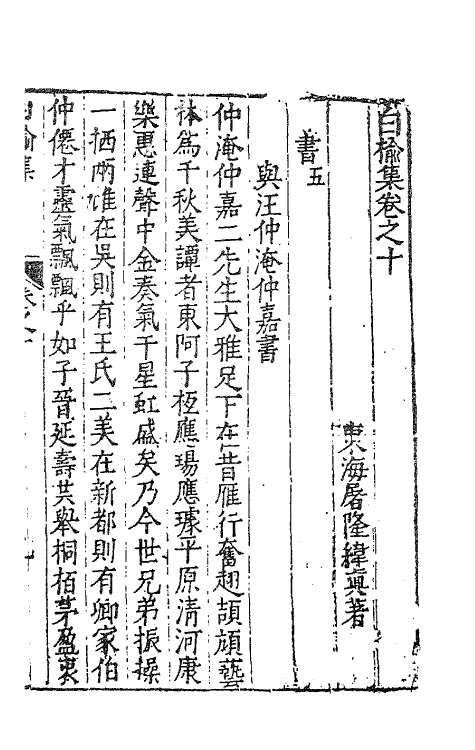 白榆集卷之十
東海屠隆緯眞著
書五
與汪仲淹仲嘉書
仲淹仲嘉二先生大雅足下在昔雁行奮翅頡頏藝
林爲千秋美譚者東阿子桓應瑒應璩平原清河康
樂惠連聲中金奏氣干星虹盛矣乃今世兄弟振操
一栖兩雄在吳則有王氏二美在新都則有卿家伯
仲僊才靈氣飄飄乎如子晉延壽共舉桐栢茅盈衷
白榆集
卷之十